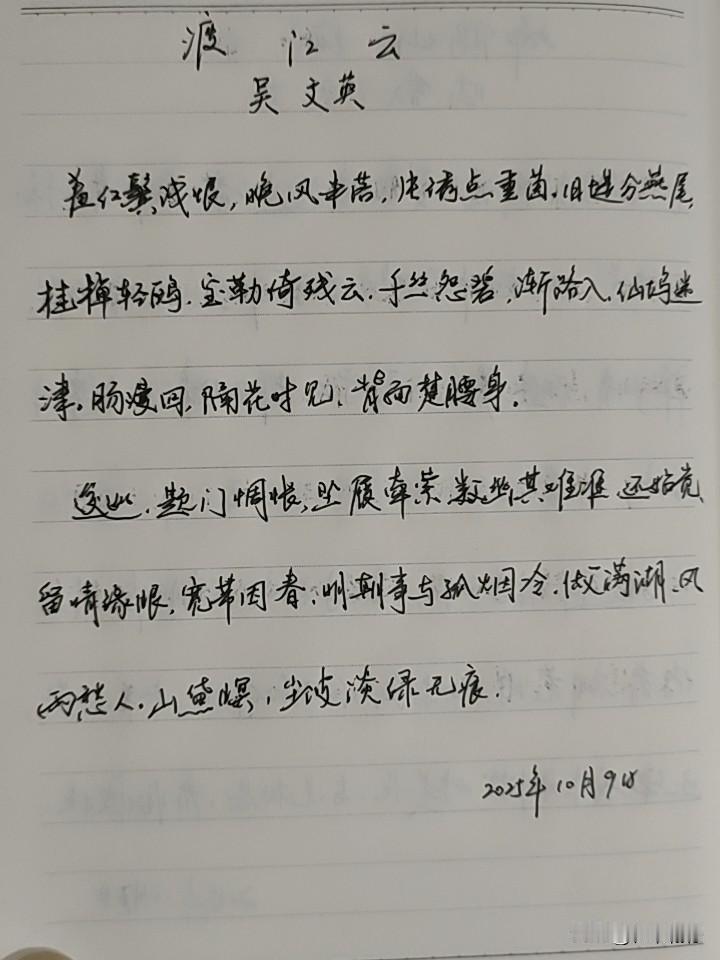 渡江云
吴文英
羞红鬓浅恨，晚风未落，片绣点重茵。旧堤分燕尾，
桂棹轻鸥，宝勒倚残云。千丝怨碧，渐路入，仙坞迷
津。肠漫回，隔花时见，背面楚腰身。
逡巡，题门惆怅，坠履牵萦，数幽期难准，还始觉，
留情缘眼，宽带因春。明朝事与孤烟冷，做满湖，风
雨愁人。山黛暝，尘波淡绿无痕。
2025年10月9日